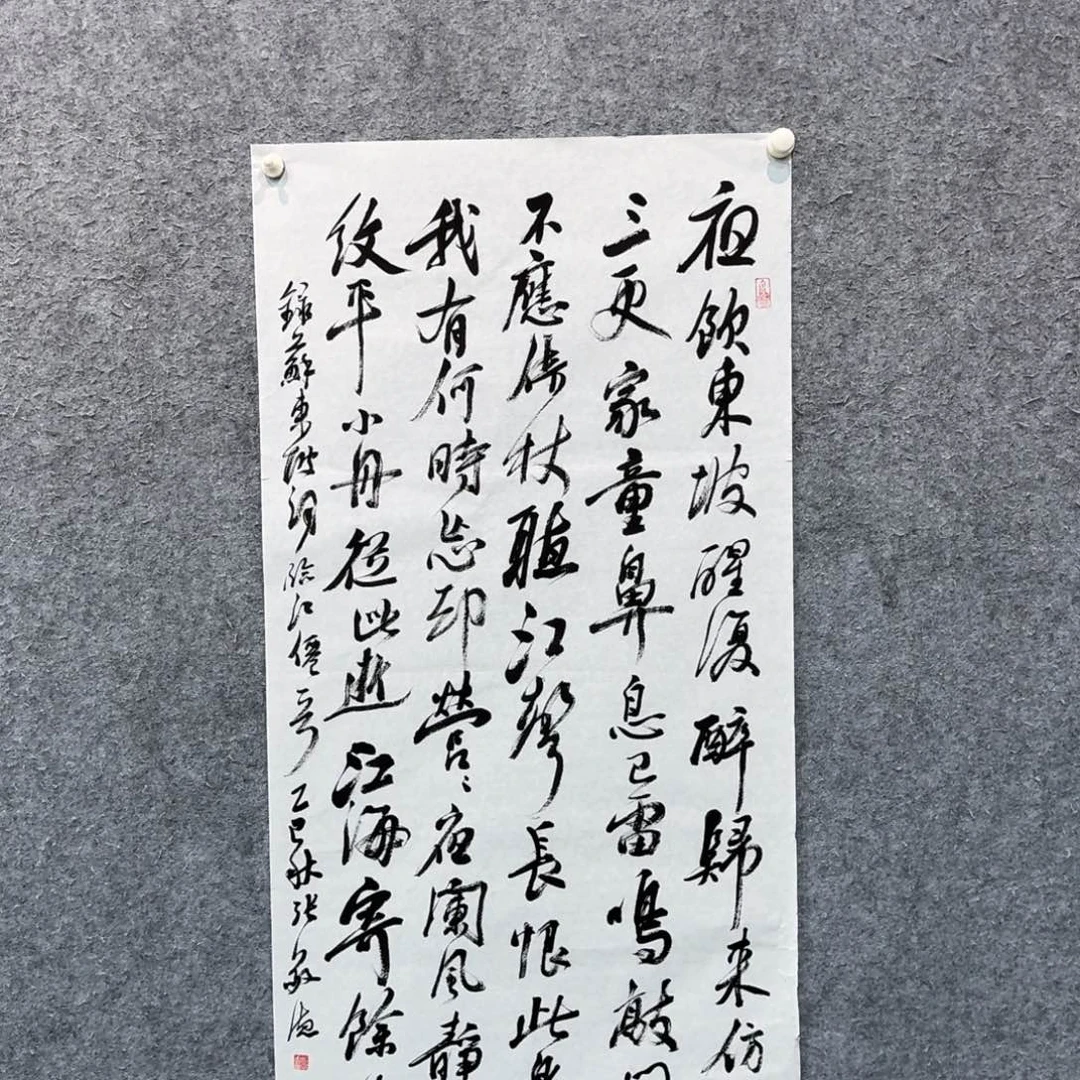 夜飲東坡醒復醉歸来仿
三更家童鼻息已雷鳴敲
不應倚杖聽江聲長恨此
我有何時忘却營〻夜闌風静
紋平小舟從此逝江海寄餘
錄蘇東坡詞臨江僊一首乙巳秋張